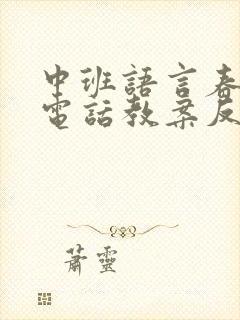 中班語言春
電話教案反
蕭靈